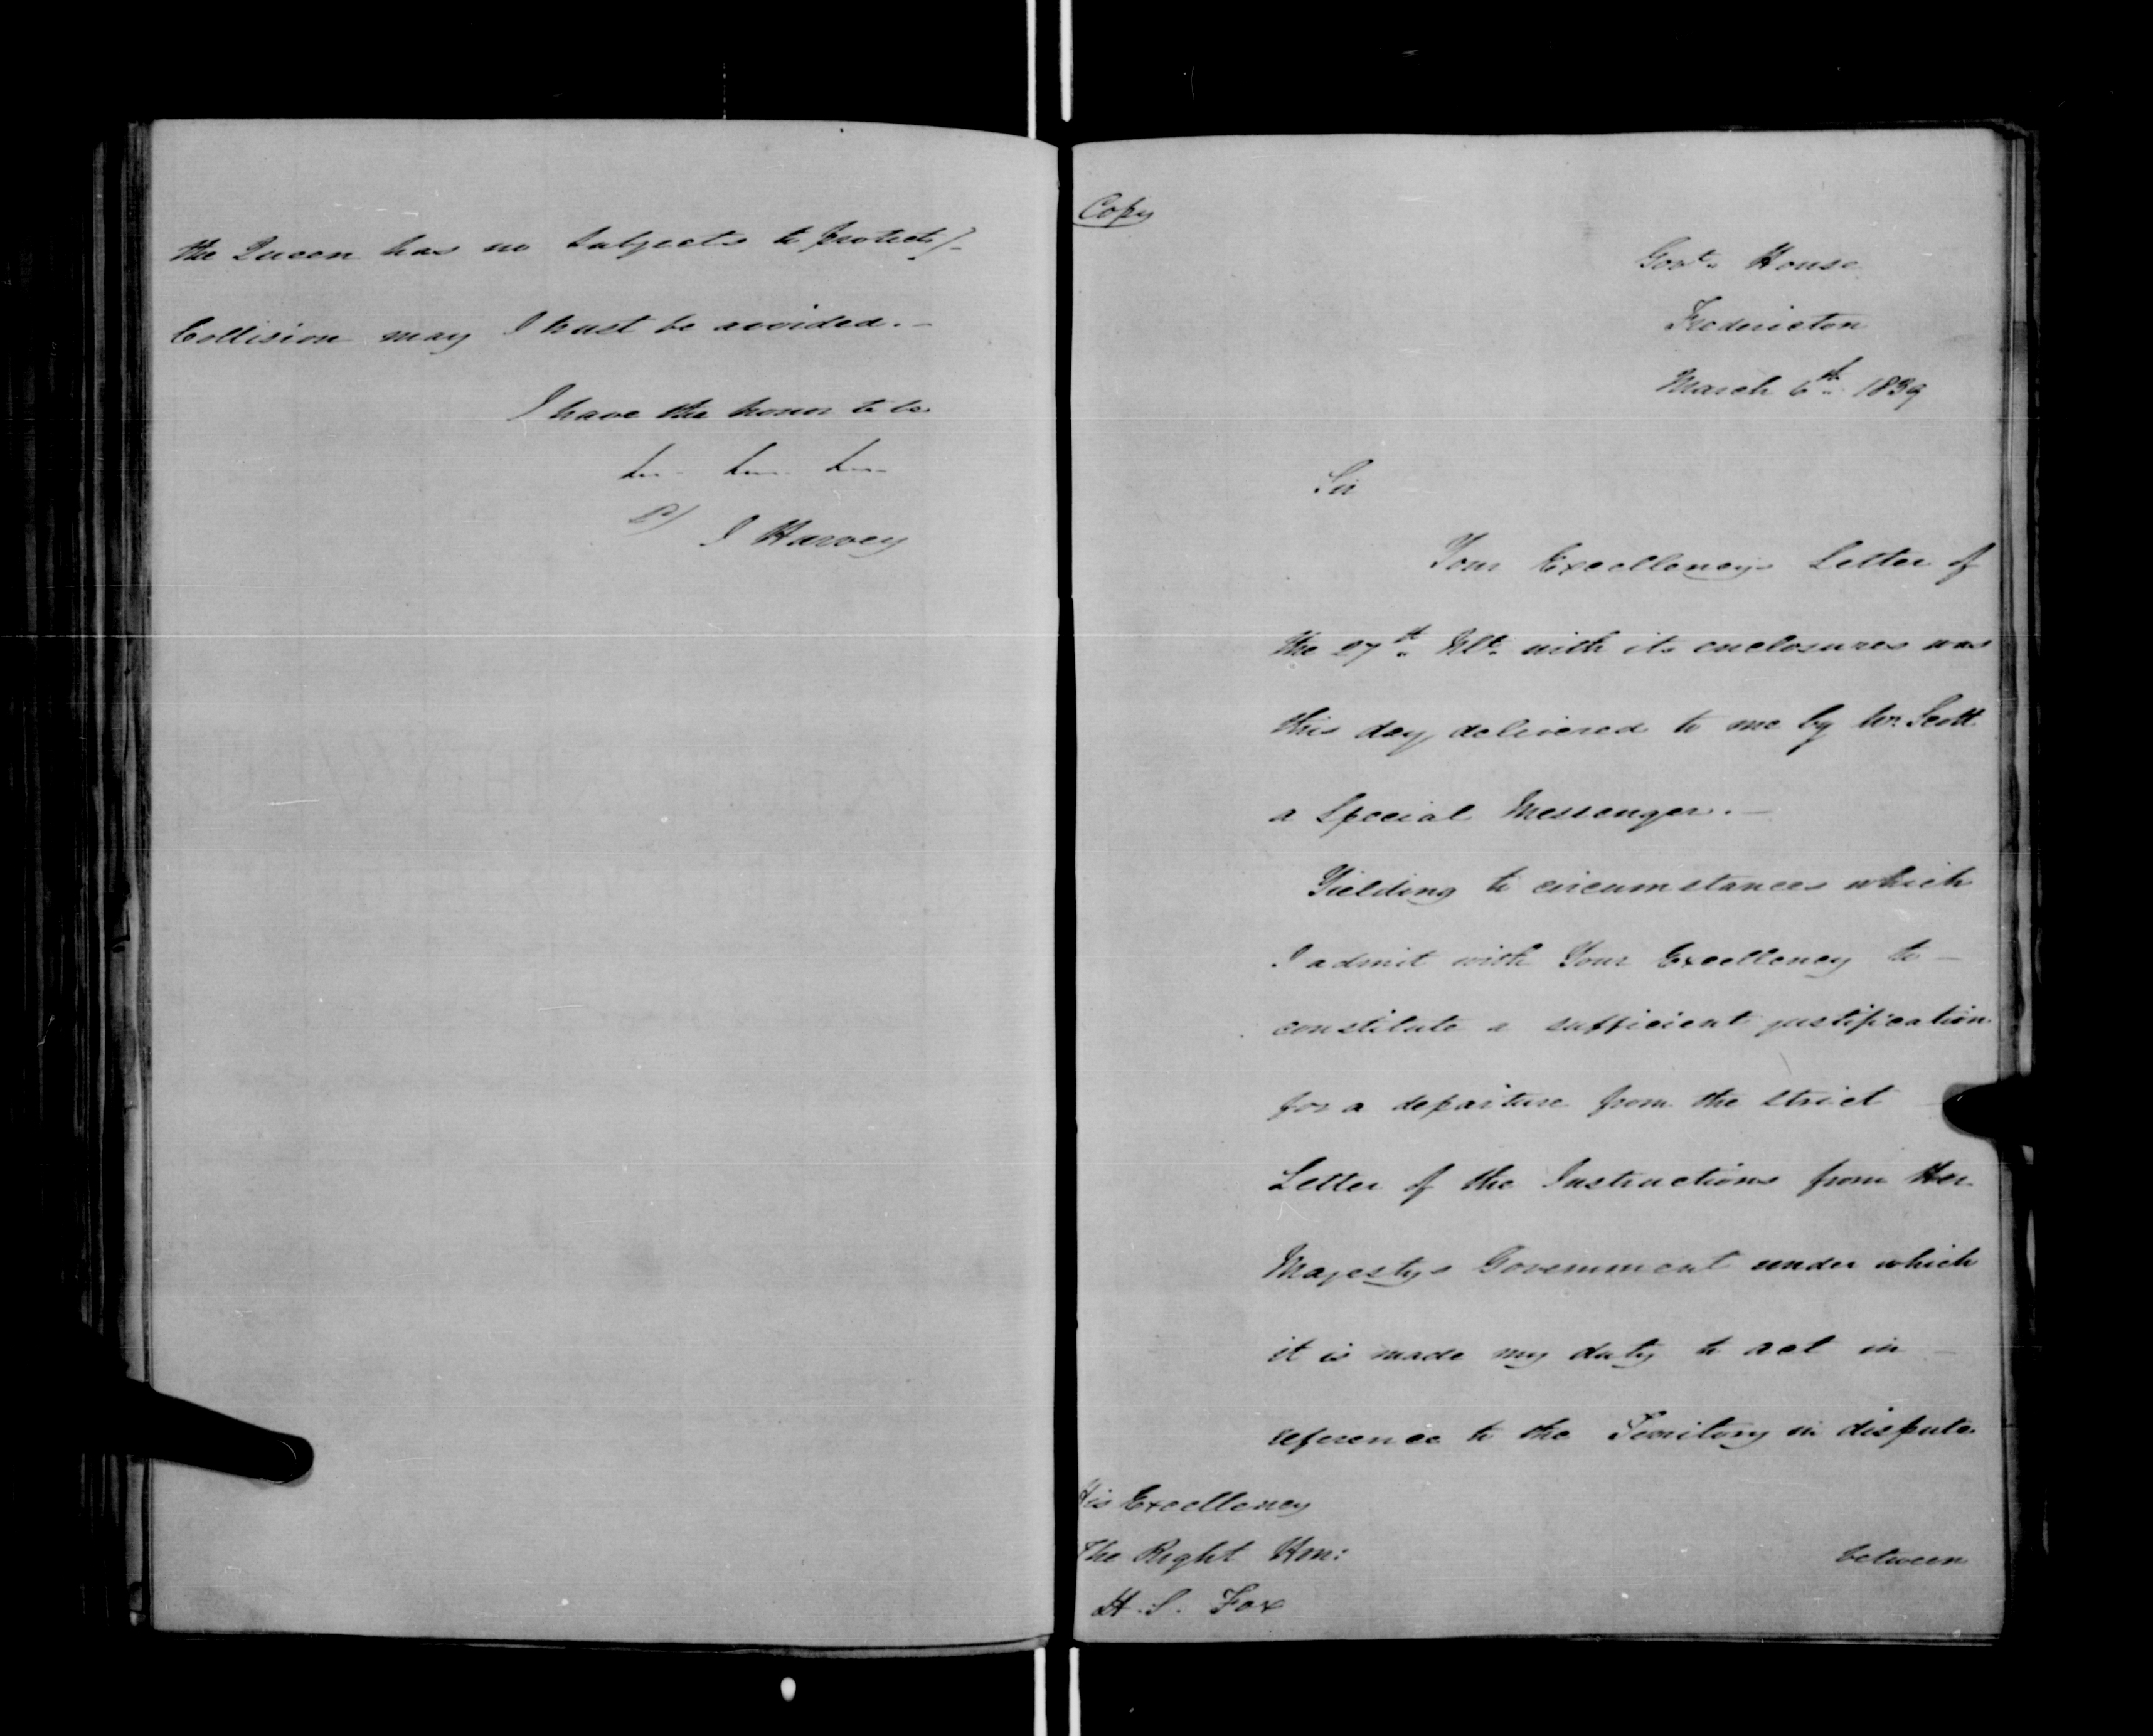 the Queen has no Subjects to protect)_
Collision may I trust be avoided._
I have the honor to be
&c &c &c
J Harvey
Copy
Govt. House
Fredericton
March 6th. 1839
Sir
Your Excellency's Letter of
the 27th. Ult. with its enclosures was
this day delivered to me by Mr. Scott
a Special Messenger._
Yielding to circumstances which
I admit with Your Excellency to _
constitute a sufficient justification
for a departure from the strict
Letter of the Instructions from Her
Majesty's Government under which
it is made my duty to act in _
reference to the Territory in dispute
His Excellency
The Right Hon:
H. S. Fox
between